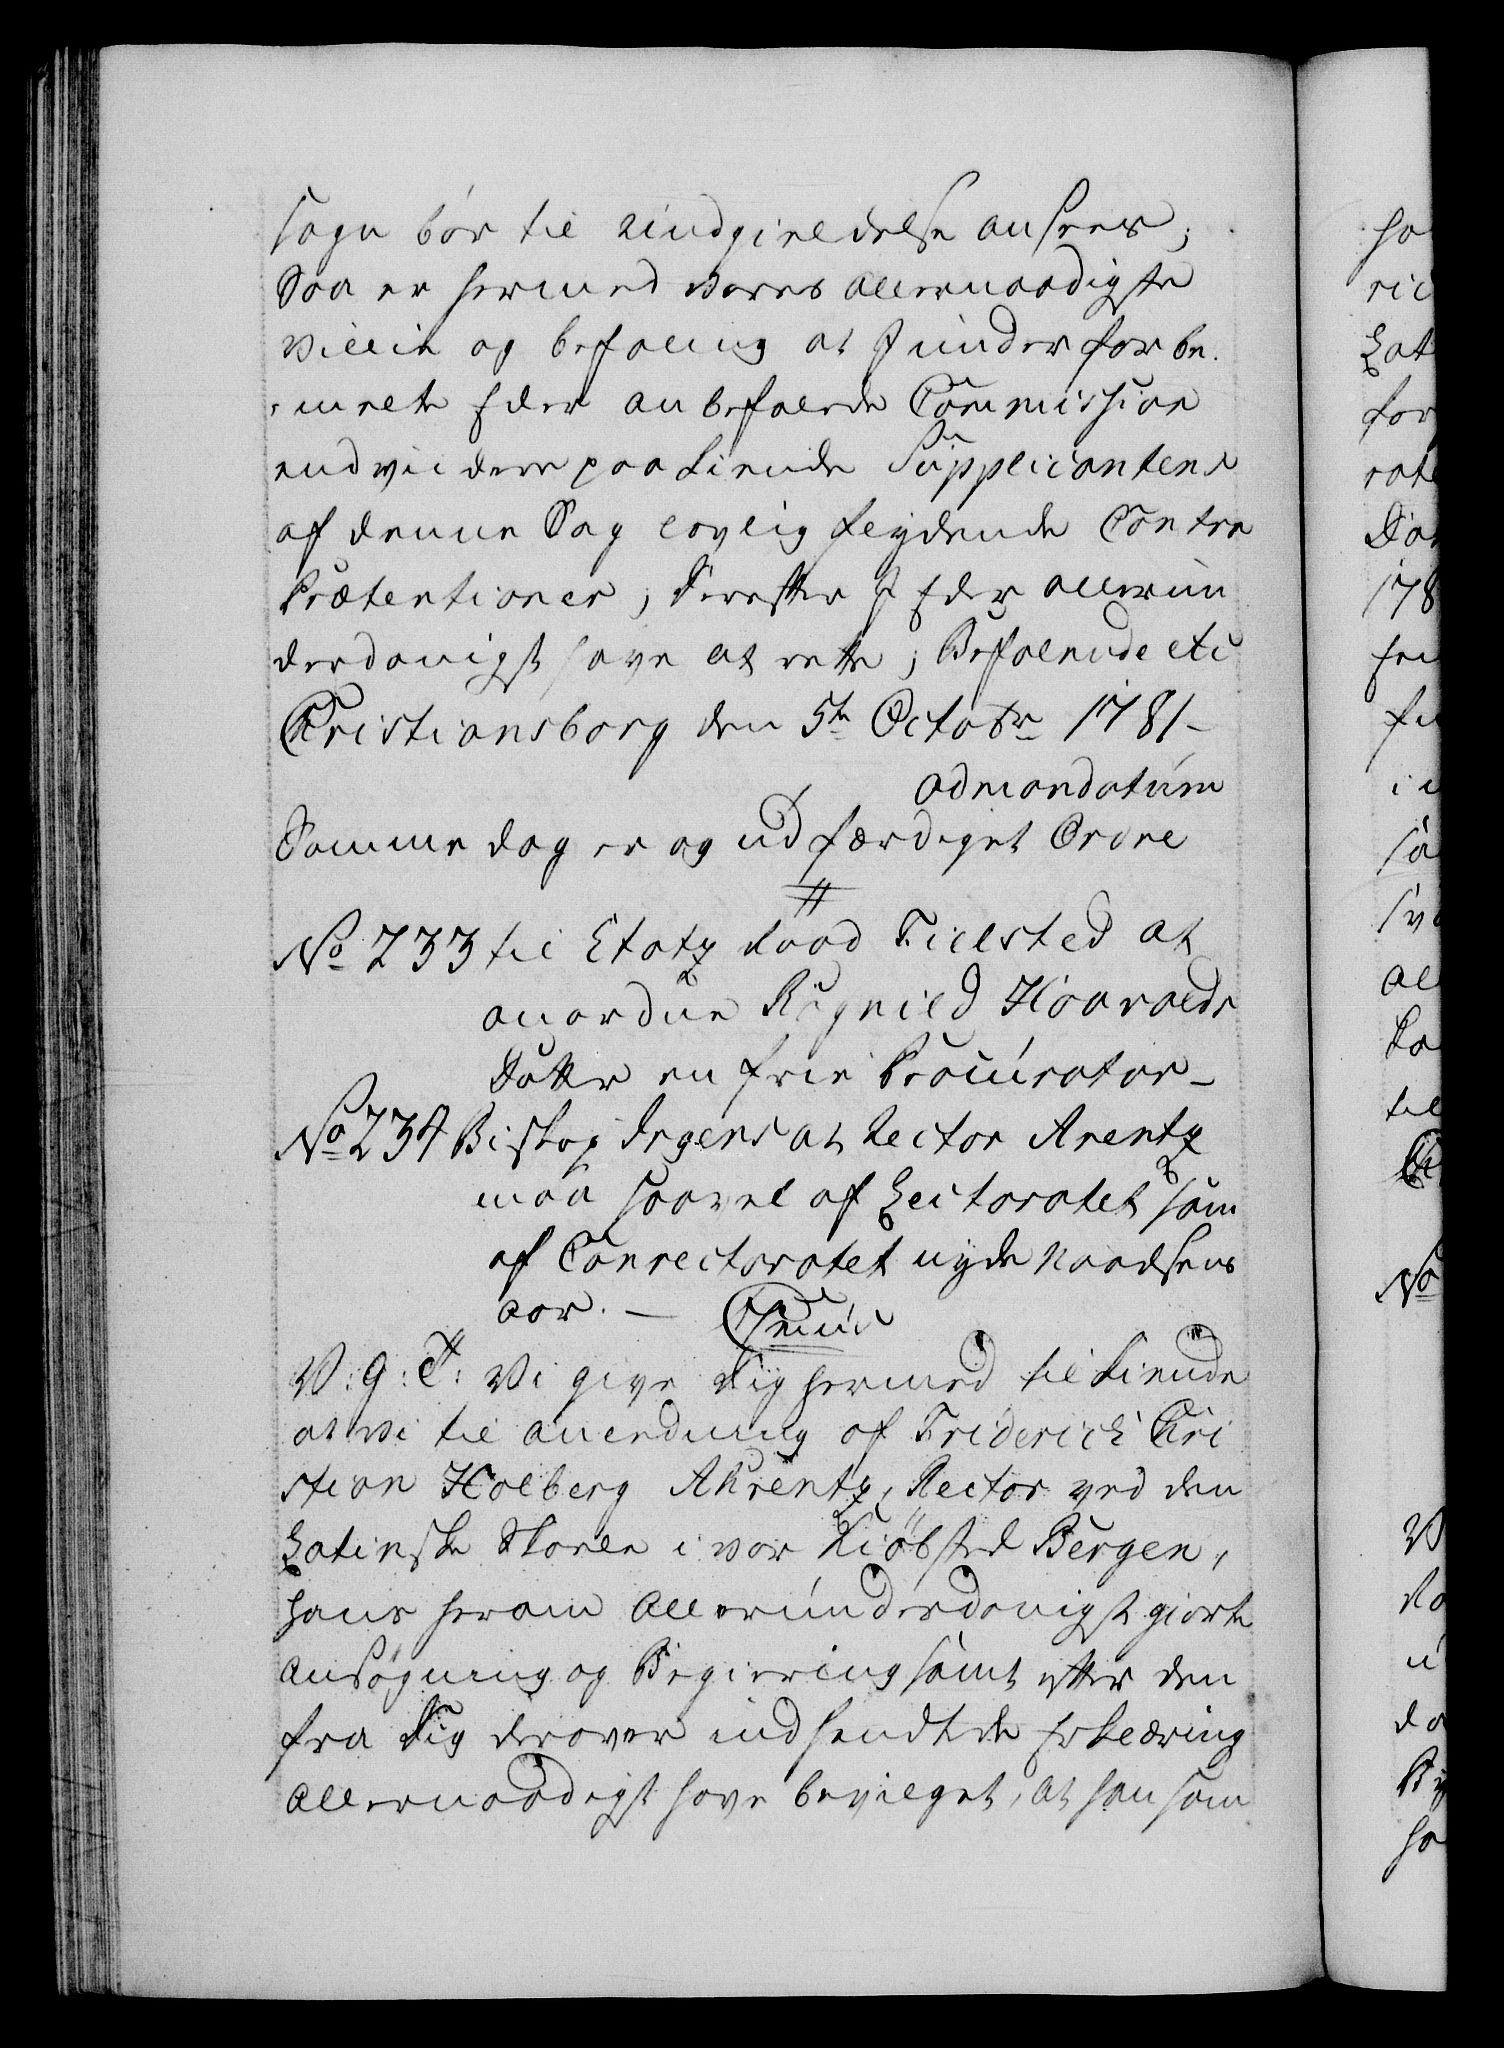 Sagn bør til undgieldelse ansees;
Saa er hermed vores allernaadigste
villie og befaling at I under forbe-
-meelte Eder anbefalede Commission
endvidere paakiende Supplicantens
af denne Sag lovlig flydende Contra
Prætentioner; Derefter I Eder allerun
derdanigst have at rette; Befalende etc
Christiansborg den 5te Octobr 1781-
ad mandatum
Samme dag er og udfærdiget Ordre
No 233 til Etatz Raad Fielsted at
anordne Ragnild Haaralds
Dotter en frie Procurator-
No 234 Biskop Irgens at Rector Arentz
maa saavel af Lectoratet som
af Conrectoratet nyde Naadsens
Aar. —
V: G: T: Vi give Dig hermed tilkiende
at vi til anledning af Friderich Chri
stian Holberg Ahrentz, Rector ved den
Latinske Skole i vor Kiöbsted Bergen,
hans herom allerunderdanigst giorte
Ansögning og Begiering samt efter den
fra Dig derover indsendtde Erklæring
Allernaadigst have bevilget, at han som